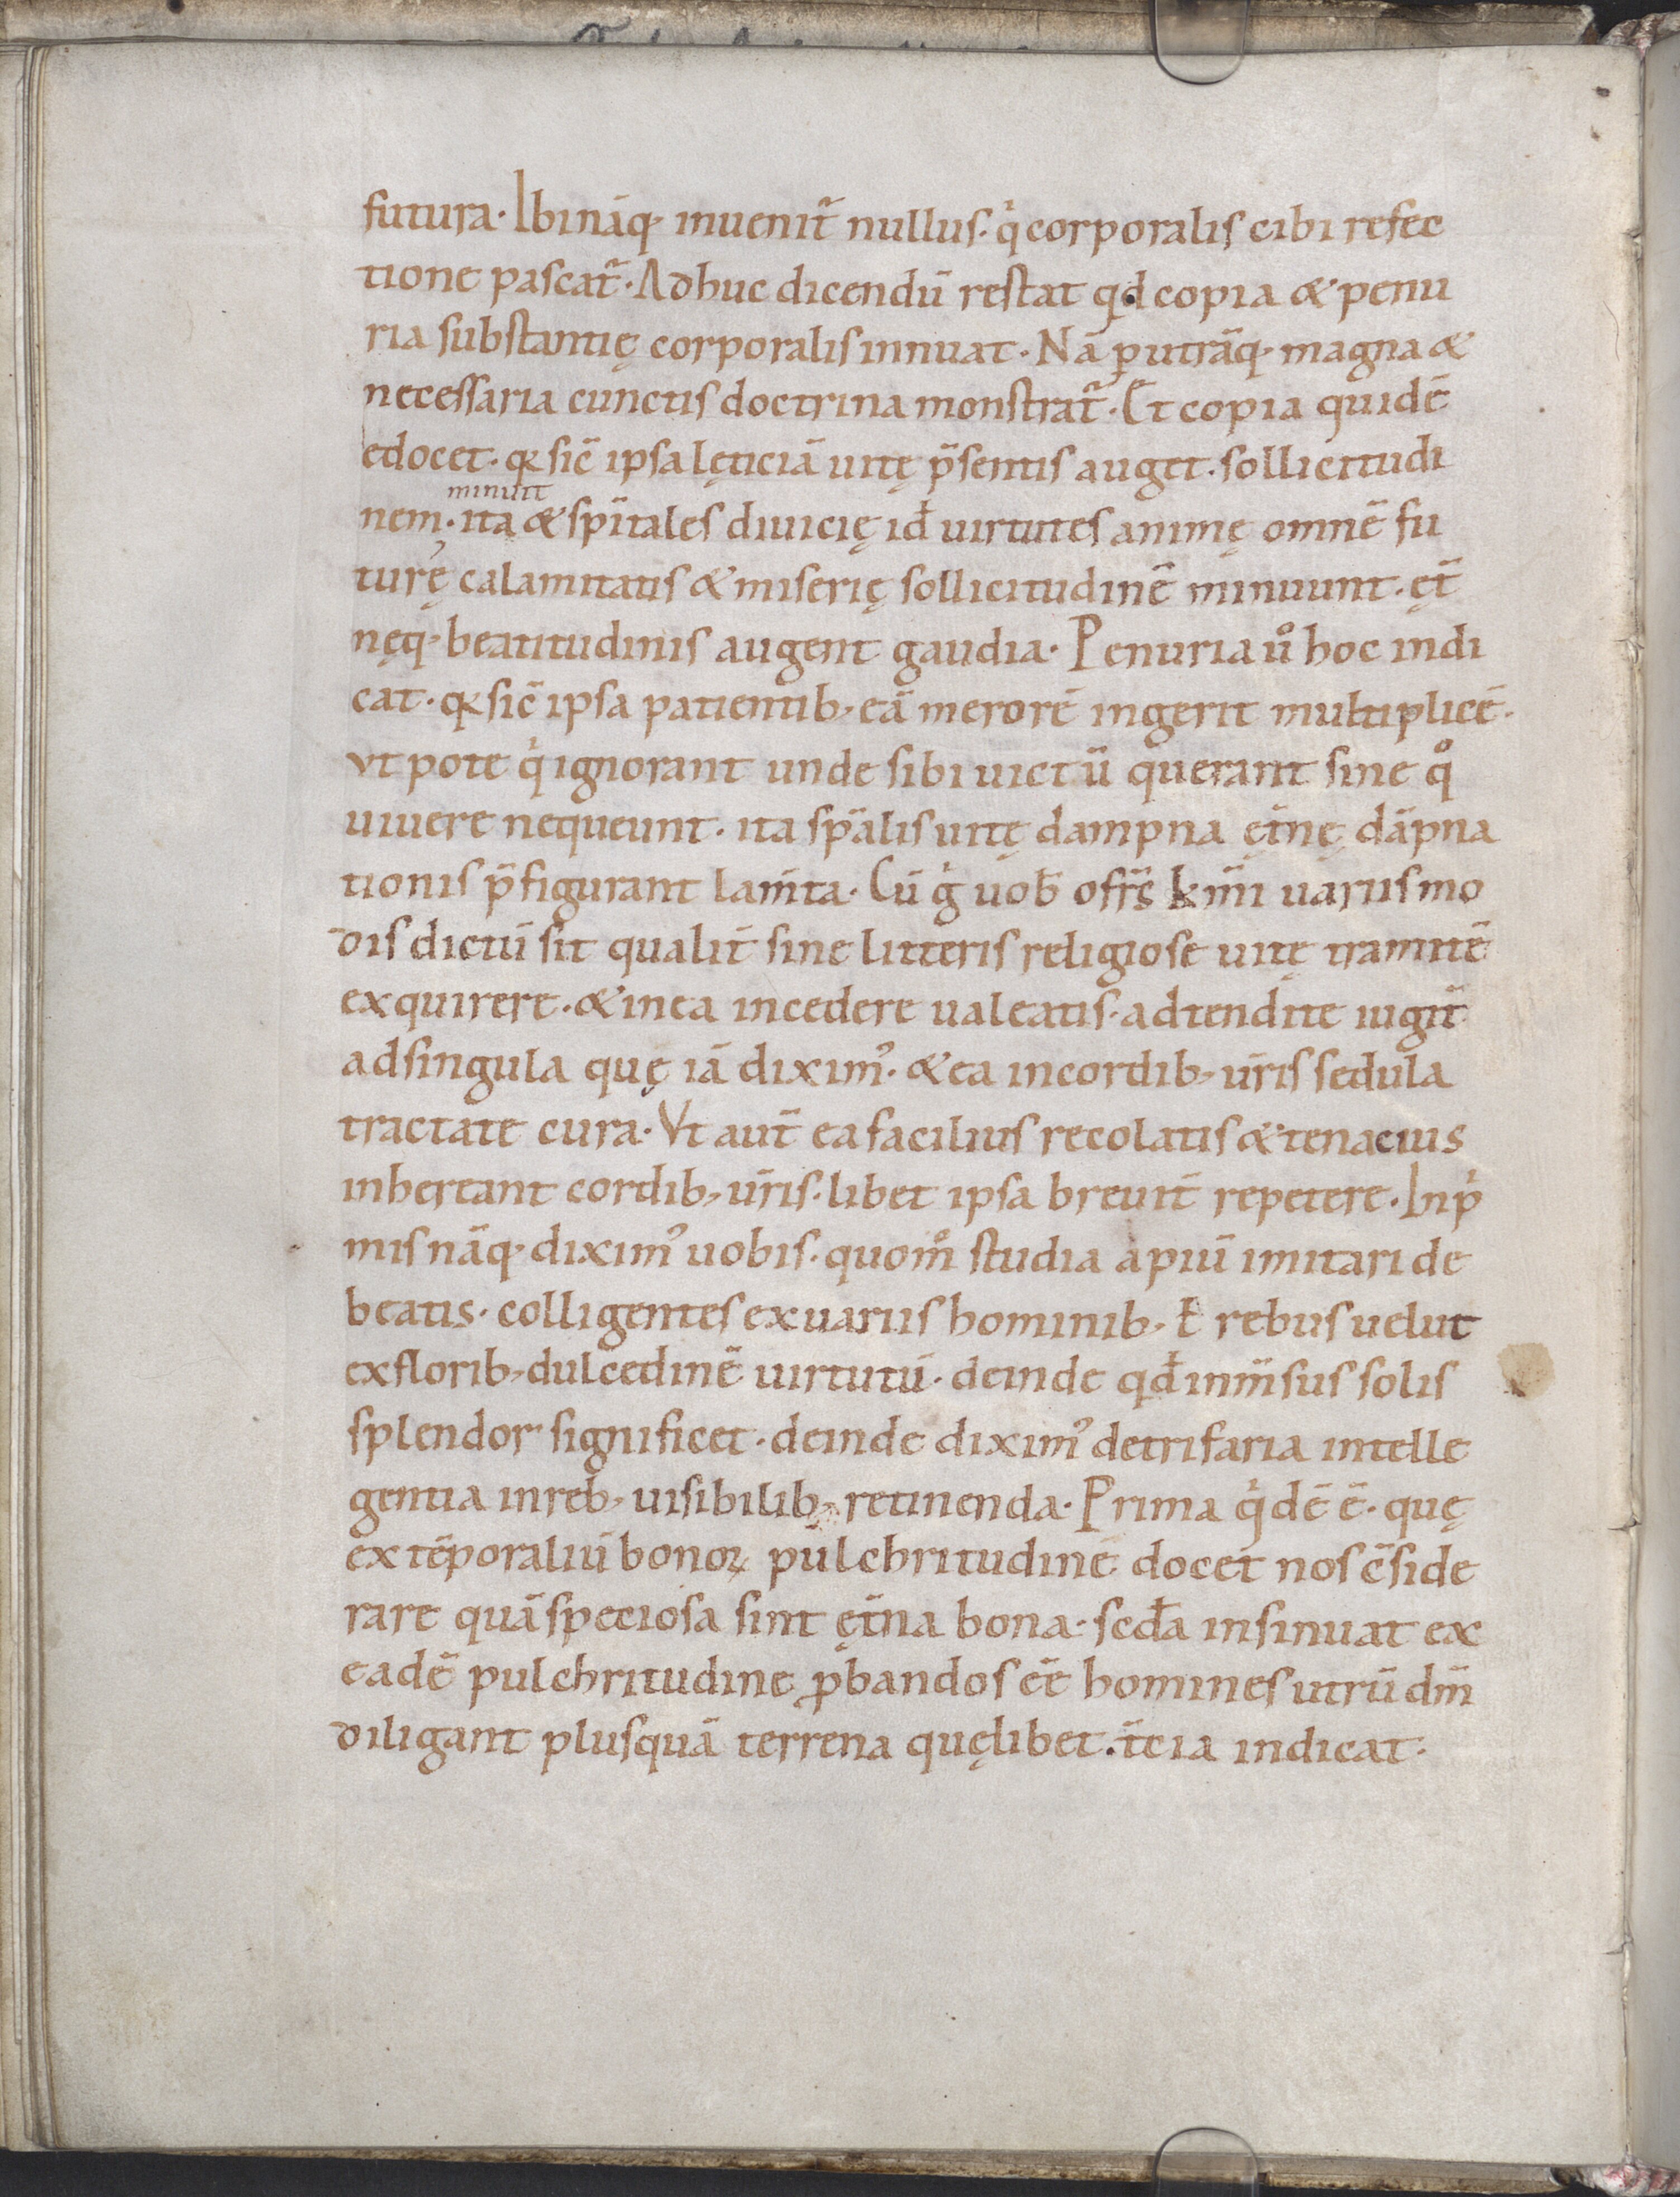 futura· Ibi nāq· inuenit᷑ nullus· q̇ corporalis cibi refec
tione pascat᷑· Adhuc dicendū restat qd copia & penu
ria substantię corporalis innuat· Nā ꝑ utrāq· magna &
necessaria cunctis doctrina monstrat᷑· Et copia quidē
edocet· qꝛ sic̄ ipsa lęticiā uitę p̄sentis auget· sollicitudi
minuit
nem· ita & sp̄itales diuicię id̄ uirtutes animę omnē fu
turę calamitatis & miserię sollicitudinē minuunt· ęt̄
nęq· beatitudinis augent gaudia· Penuria uͦ hoc indi
cat· qꝛ sic̄ ipsa patientib; eā merorē ingerit multiplicē·
ut pote q̇ ignorant unde sibi uictū querant sine qͦ
uiuere nequeunt· ita sp̄alis uitę dampna ęt̄nę dāpna
tionis p̄figurant lam̄ta· Cū g̊ uob̄ o fr̄s k̄m̄i uariis mo
dis dictū sit qualit̄ sine litteris religiose uitę tramitē
exquirere· & in ea incedere ualeatis· adtendite iugit̄
ad singula quę iā dixim᾿· & ea in cordib; ur̄is sedula
tractate cura· Vt aut̄ ea facilius recolatis & tenacius
inhereant cordib; ur̄is· libet ipsa breuit̄ repetere· Inp̍
mis nāq· dixim᾿ uobis· quom̊ studia apiū imitari de
beatis· colligentes ex uariis hominib; ł rebus uelut
ex florib; dulcedinē uirtutū· deinde qd̄ inm̄sus solis
splendor significet· deinde dixim᾿ de trifaria intelle
gentia in reb; uisibilib; retinenda· Prima q̇dē ē· quę
ex tēporaliū bonoꝝ pulchritudinē docet nos c̄side
rare quā speciosa sint ęt̄na bona· sed̄a insinuat ex
eadē pulchritudine ꝓbandos eē homines utrū dm̄
diligant plusquā terrena quęlibet· t̄cia indicat·